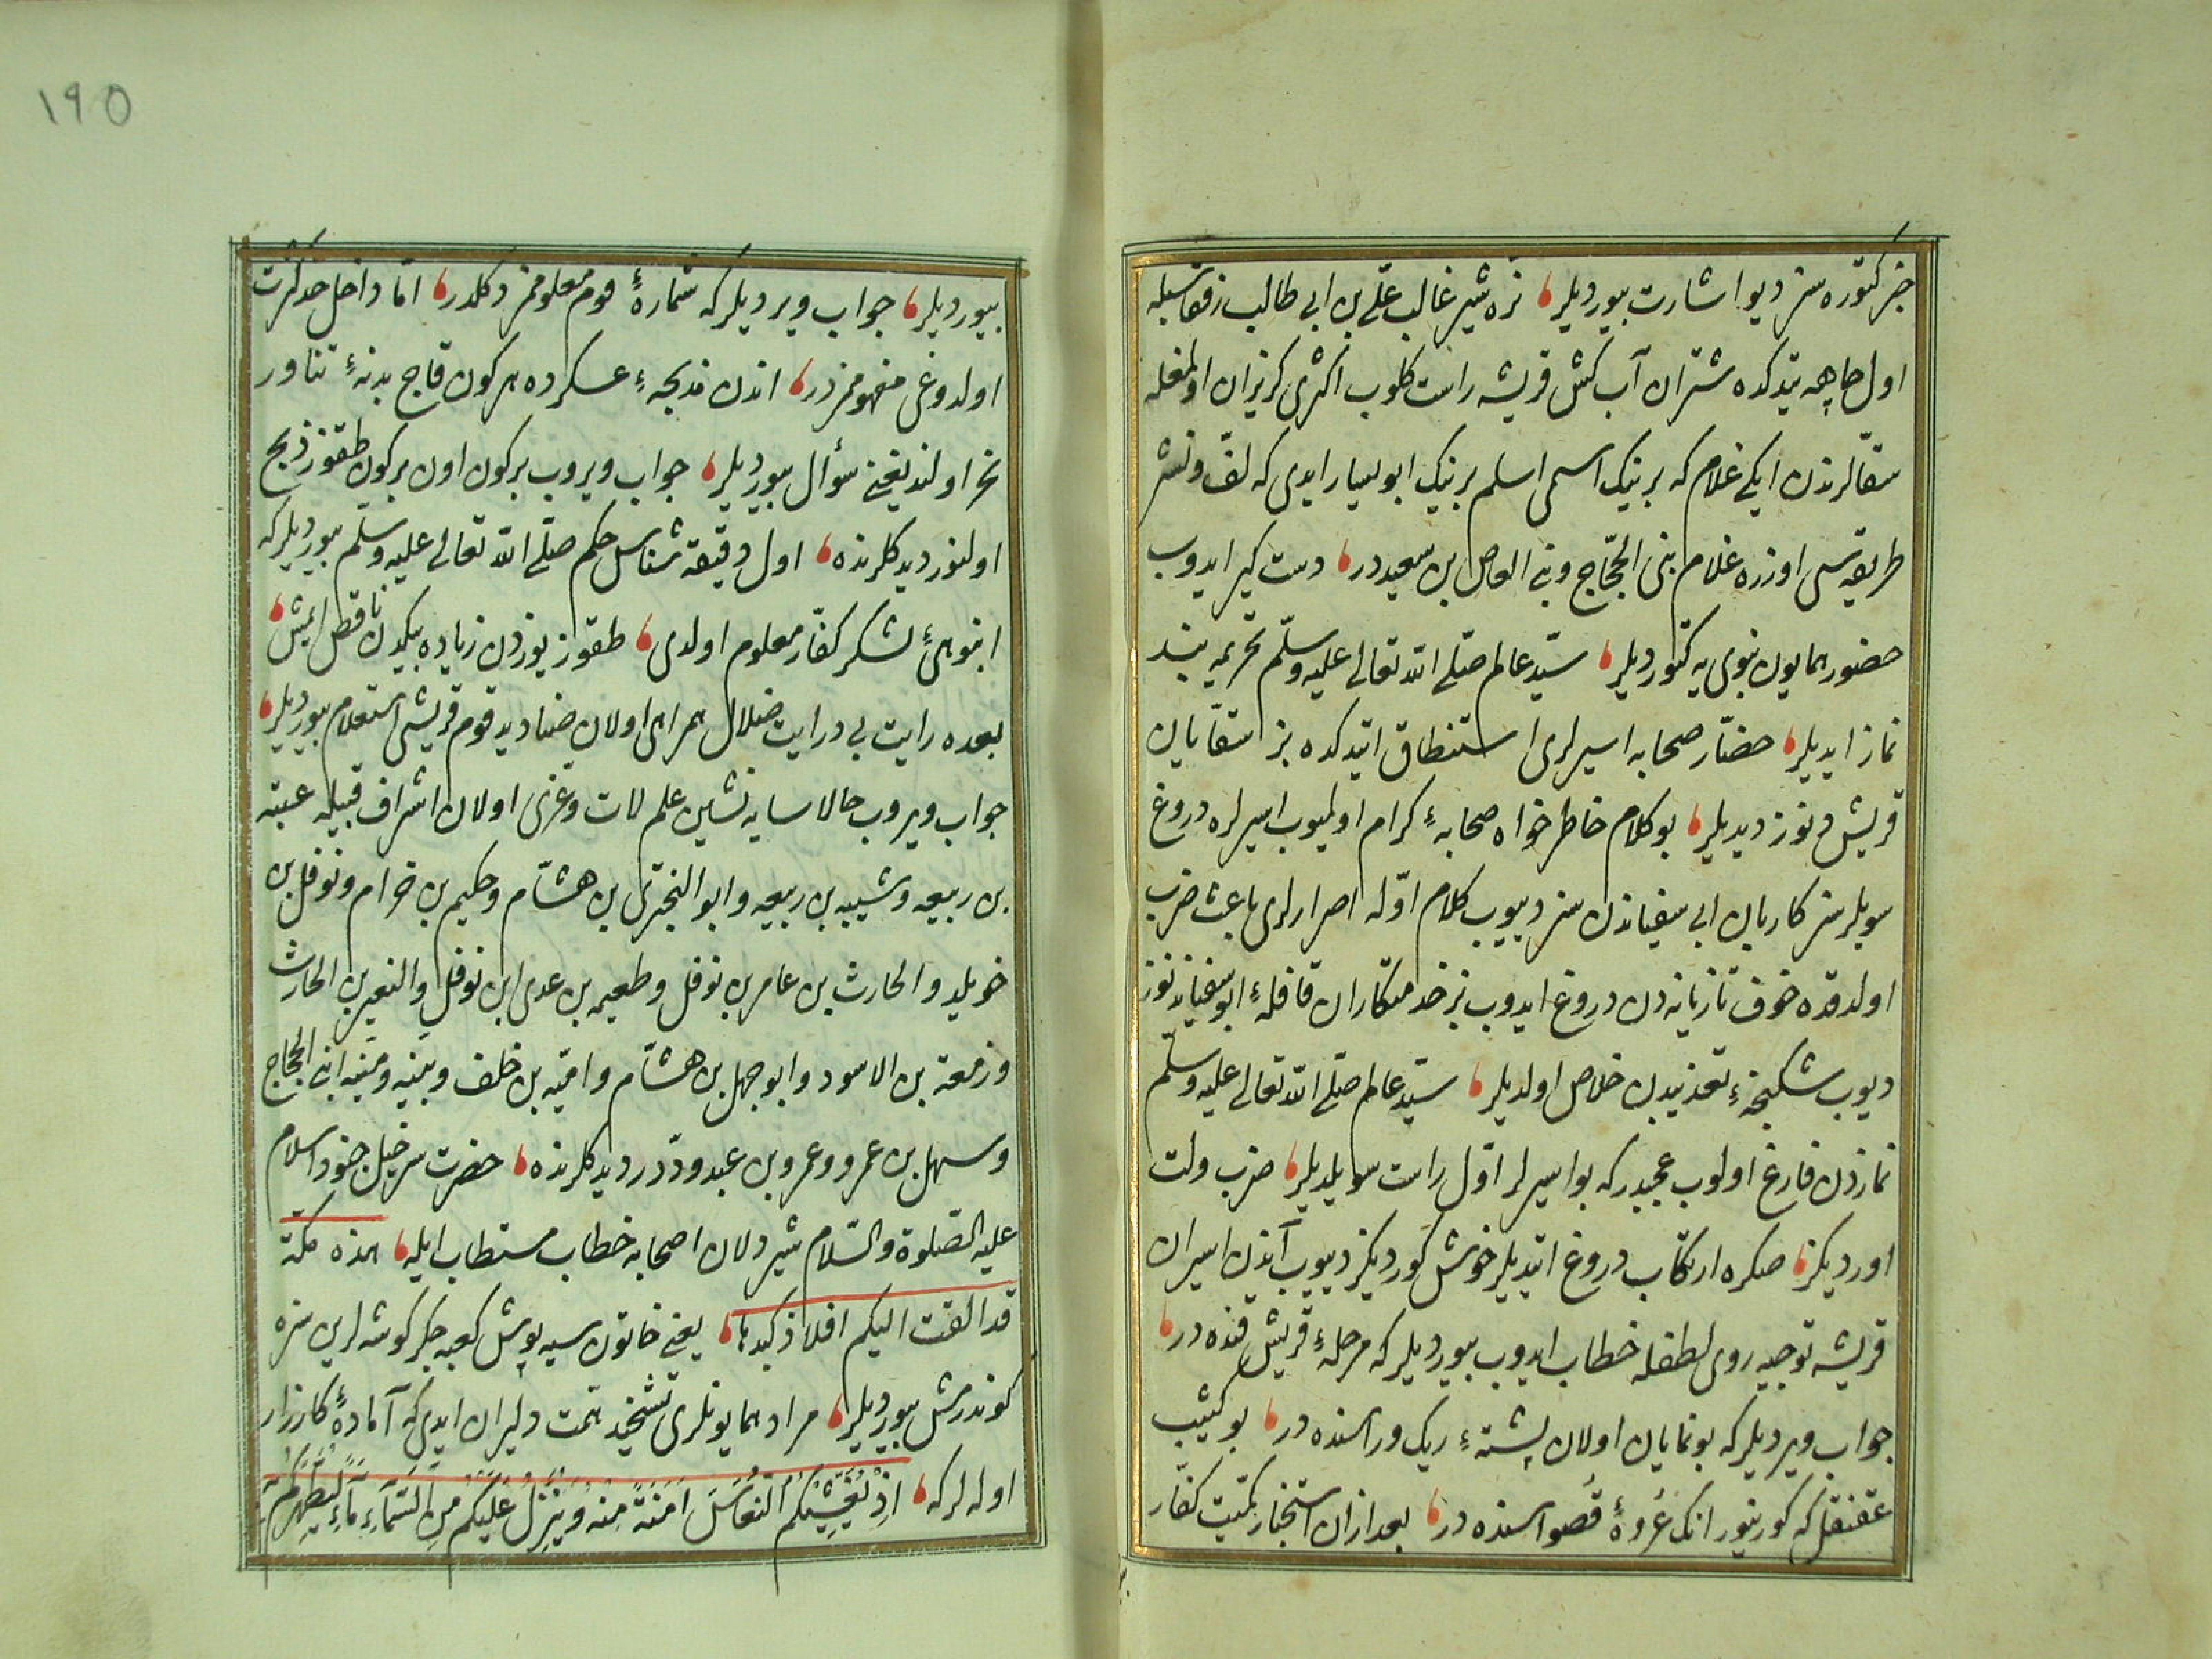 خبر كتوره سز ديو اشارت بيورديلر، نره شير غالب علىّ بن ابى طالب رفقاسيله
اول چاهه يتدكده شتران آب كش قريشه راست كلوب اكثرى كريزان اولمغله
سقّالرندن ايكى غلام كه برينك اسمى اسلم برينك ابو يسار ايدى كه لفّ و نشر
طريقه سى اوزره غلام بنى الحجّاج وبنى العاص ابن سعيددر، دست كير ايدوب
حضور همايون نبوى يه كتورديلر، سيّد عالم صلّى الله تعالى عليه وسلّم تحريمه بند
نماز ايديلر، حضّار صحابه اسيرلرى استنطاق ايتدكده بز سقّايان
قريش دنوز ديديلر، بو كلام خاطر خواه صحابهٔ كرام اولميوب اسيرلره دروغ
سويلرسز كاربان ابى سفياندن سز دييوب كلام اوّله اصرارلرى باعث ضرب
اولدقده خوف تازيانه دن دروغ ايدوب بز خدمتكاران قافلهٔ ابو سفياندنوز
ديوب شكنجهٔ تعذيبدن خلاص اولديلر، سيّد عالم صلّى الله تعالى عليه وسلّم
نمازدن فارغ اولوب عجبدر كه بو اسيرلر اوّل راست سويلديلر، ضرب ولت
اورديكز، صكره ارتكاب دروغ ايتديلر خوش كورديكز دييوب آندن اسيران
قريشه توجيه روى لطفله خطاب ايدوب بيورديلر كه مرحلهٔ قريش قنده در،
جواب ويرديلر كه بو نمايان اولان پشتهٔ ريك وراسنده در، بو كثيب
عقنقل كه كورينور انك عُروهٔ قُصواسنده در، بعد ازان استخبار كمّيت كفّار
١٩٥
بيورديلر، جواب ويرديلر كه شمارهٔ قوم معلومز دكلدر، امّا داخل حد كثرت
اولدوغى مفهومزدر، اندن مذبحهٔ عسكرده هر كون قاچ بدنهٔ تناور
نحر اولنديغنى سؤال بيورديلر، جواب ويروب بر كون اون بر كون طقوز ذبح
اولنور ديدكلرنده، اول دقيقه شناس حكم صلّى الله تعالى عليه وسلّم بيورديلر كه
انبوهىٔ لشكر كفّار معلوم اولدى، طقوز يوزدن زياده بيكدن ناقص ايمش،
بعده رايت بى درايت ضلال همراهى اولان صناديد قوم قريشى استعلام بيورديلر،
جواب ويروب حالا سايه نشين علم لات وعزى اولان اشراف قبيله عتبه
بن ربيعه وشيبه بن ربيعه وابو البخترى بن هشّام وحكيم بن خرام ونوفل بن
خويلد والحارث بن عامر بن نوفل وطعيمه بن عدى ابن نوفل والنضير بن الحارث
وزمعة بن الاسود وابو جهل بن هشّام واميّه بن خلف ونبيه ومنبّه ابنى الحجّاج
وسهل بن عمرو وعمرو بن عبدودّدر ديدكلرنده، حضرت سرخيل جنود اسلام
عليه الصّلوة والسّلام شير دلان اصحابه خطاب مستطاب ايله، هذه مكّة
قد القت اليكم افلاذ كبدها، يعنى خاتون سيه پوش كعبه جكر كوشه لرين سزه
كوندرمش بيورديلر، مراد همايونلرى تشخيذ همّت دليران ايدى كه آمادهٔ كارزار
اوله لر كه، اِذْ يُغَشِّيكُمُ النُّعَاسَ اَمَنَةً مِنْهُ وَيُنَزِّلُ عَلَيْكُمْ مِنَ السَّمَآءِ مَآءً لِيُطَهِّرَكُمْ